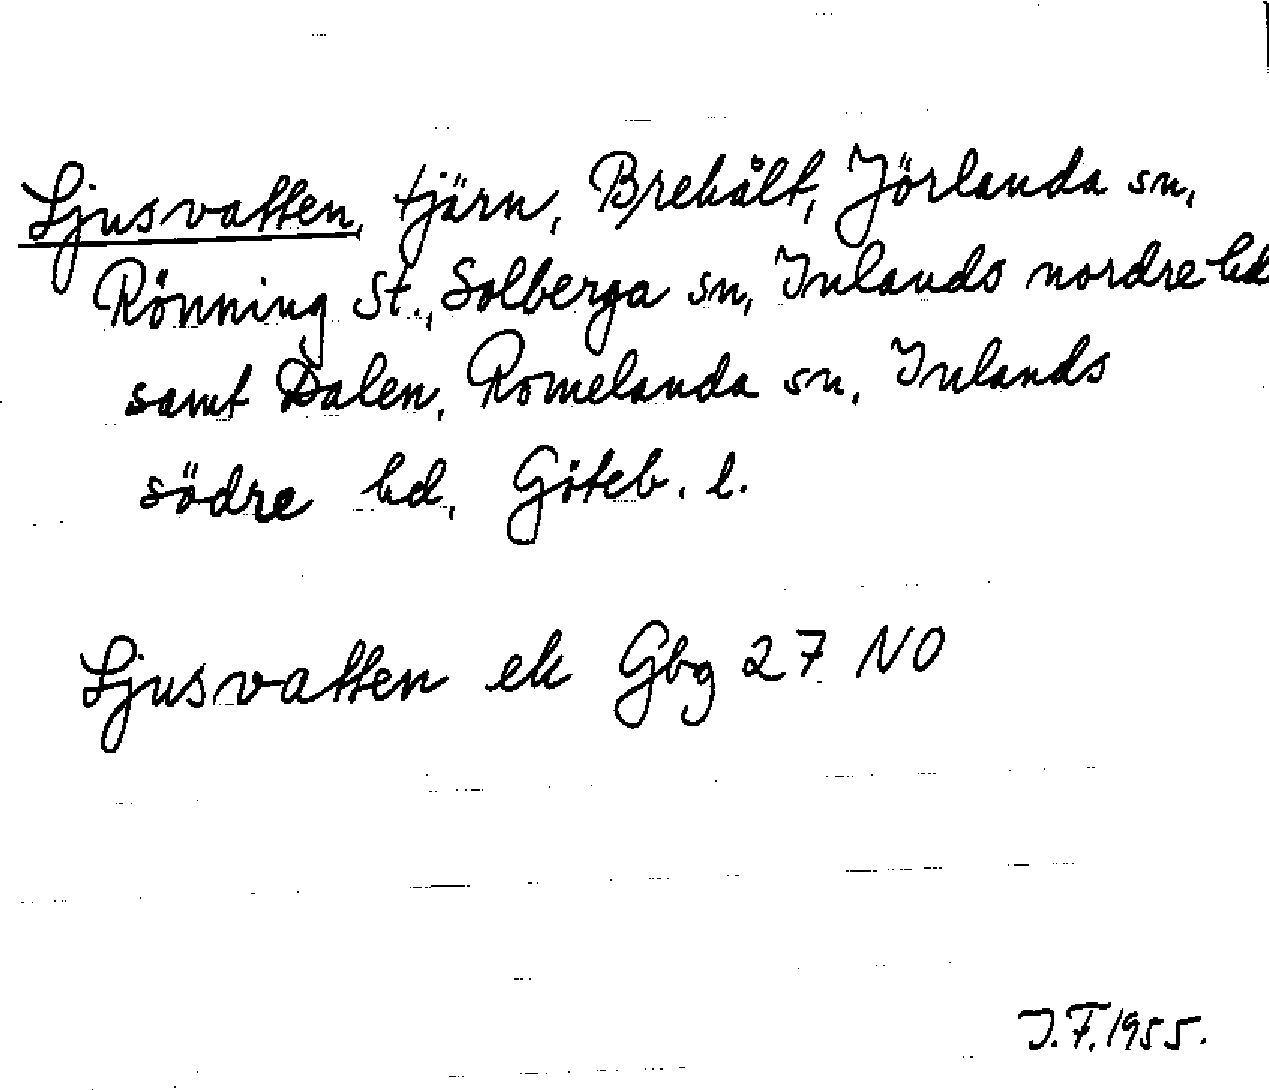 Ljusvatten, tjärn, Brehålt, Jörlanda sn,
Rönning St., Solberga sn, Inlands nordre hd
samt Dalen, Romelanda sn, Inlands
södre hd, Göteb. l.
Ljusvatten ek Gbg 27 NO
J.F. 1955.